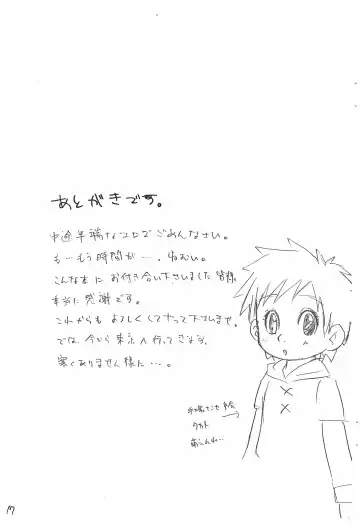 あとがきです。
中途半端なエロでごめんなさい。
も…もう時間が…。ねむい。
こんな本に お付き合い下さいました皆様、
本当に感謝です。
これからも よろしくしてやって下さいませ。
では、今から東京へ行ってきます。
寒くありません様に…。
タカト
17